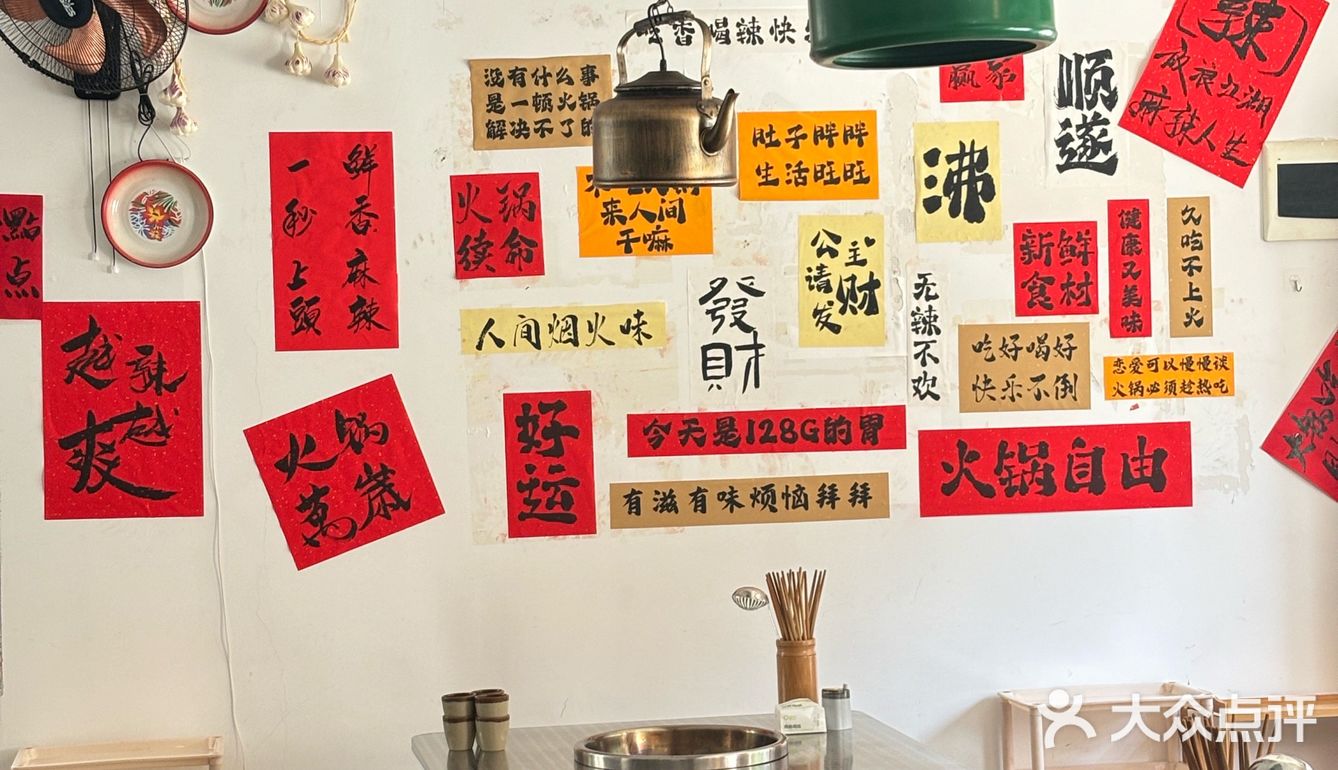 點
点
越辣
越爽
鲜香麻辣
一秒上頭
火锅
萬歲
没有什么事
是一顿火锅
解决不了的
火锅
续命
来人间
干嘛
肚子胖胖
生活旺旺
人间烟火味
發財
公主
请发财
沸
顺遂
赢家
喝辣快
辣
放浪江湖
麻辣人生
无辣不欢
新鲜
食材
健康又美味
久吃不上火
吃好喝好
快乐不倒
恋爱可以慢慢谈
火锅必须趁热吃
好运
今天是128G的胃
有滋有味烦恼拜拜
火锅自由
大众点评